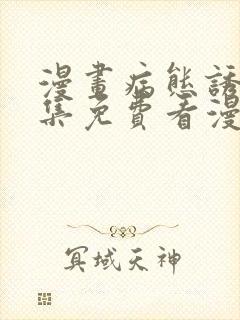 漫畫病態誘
集免費看漫
冥域天神